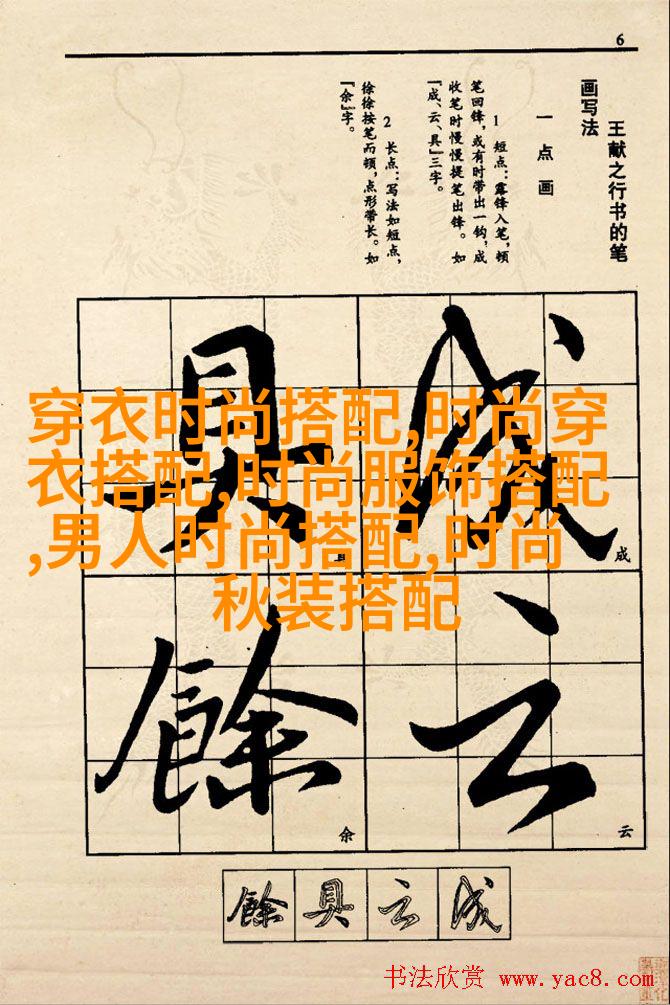 6
王献之行书的笔
画写法
一 点 画
1 短点：露锋入笔，顿
笔回锋，或有时带出一钩，成
收笔时慢慢提笔出锋。如
『成、云、具』三字。
2 长点：写法如短点，
徐徐按笔而顿，点形带长。如
『余』字。
成
具
云
餘
成
云
余
穿衣时尚搭配,时尚穿
衣搭配,时尚服饰搭配
,男人时尚搭配,时尚
秋装搭配
餘 具 云 成
书法欣赏 www.yac8.com